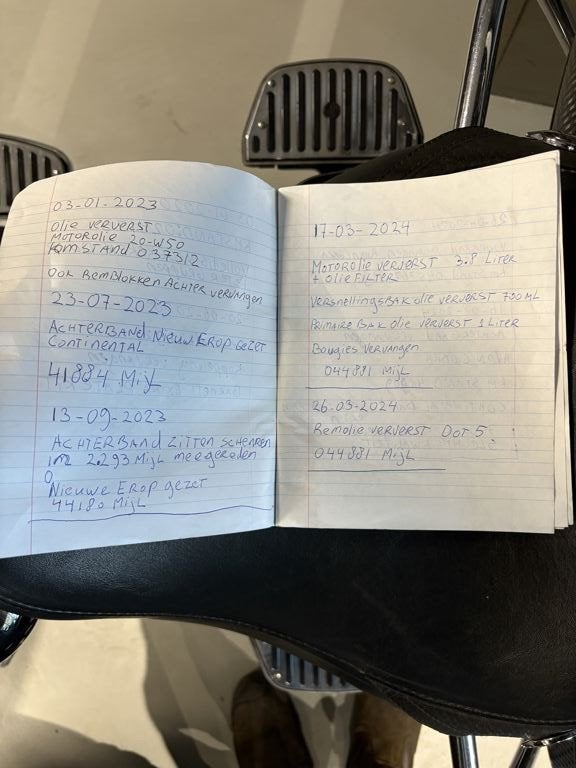 03-01-2023
olie ververst
motorolie 20-W50
kmstand 037312
ook Remblokken Achter vervangen
23-07-2023
Achterband Nieuw Erop gezet
Continental
41884 Mijl
13-09-2023
Achterband zitten scheuren
in 2.293 Mijl meegereden
Nieuwe Erop gezet
44180 Mijl
17-03-2024
Motorolie ververst 3.8 Liter
+ olie Filter
Versnellingsbak olie ververst 700 ML
Primaire Bak olie ververst 1 Liter
Bougies Vervangen
044881 Mijl
26-03-2024
Remolie ververst Dot 5
044881 Mijl